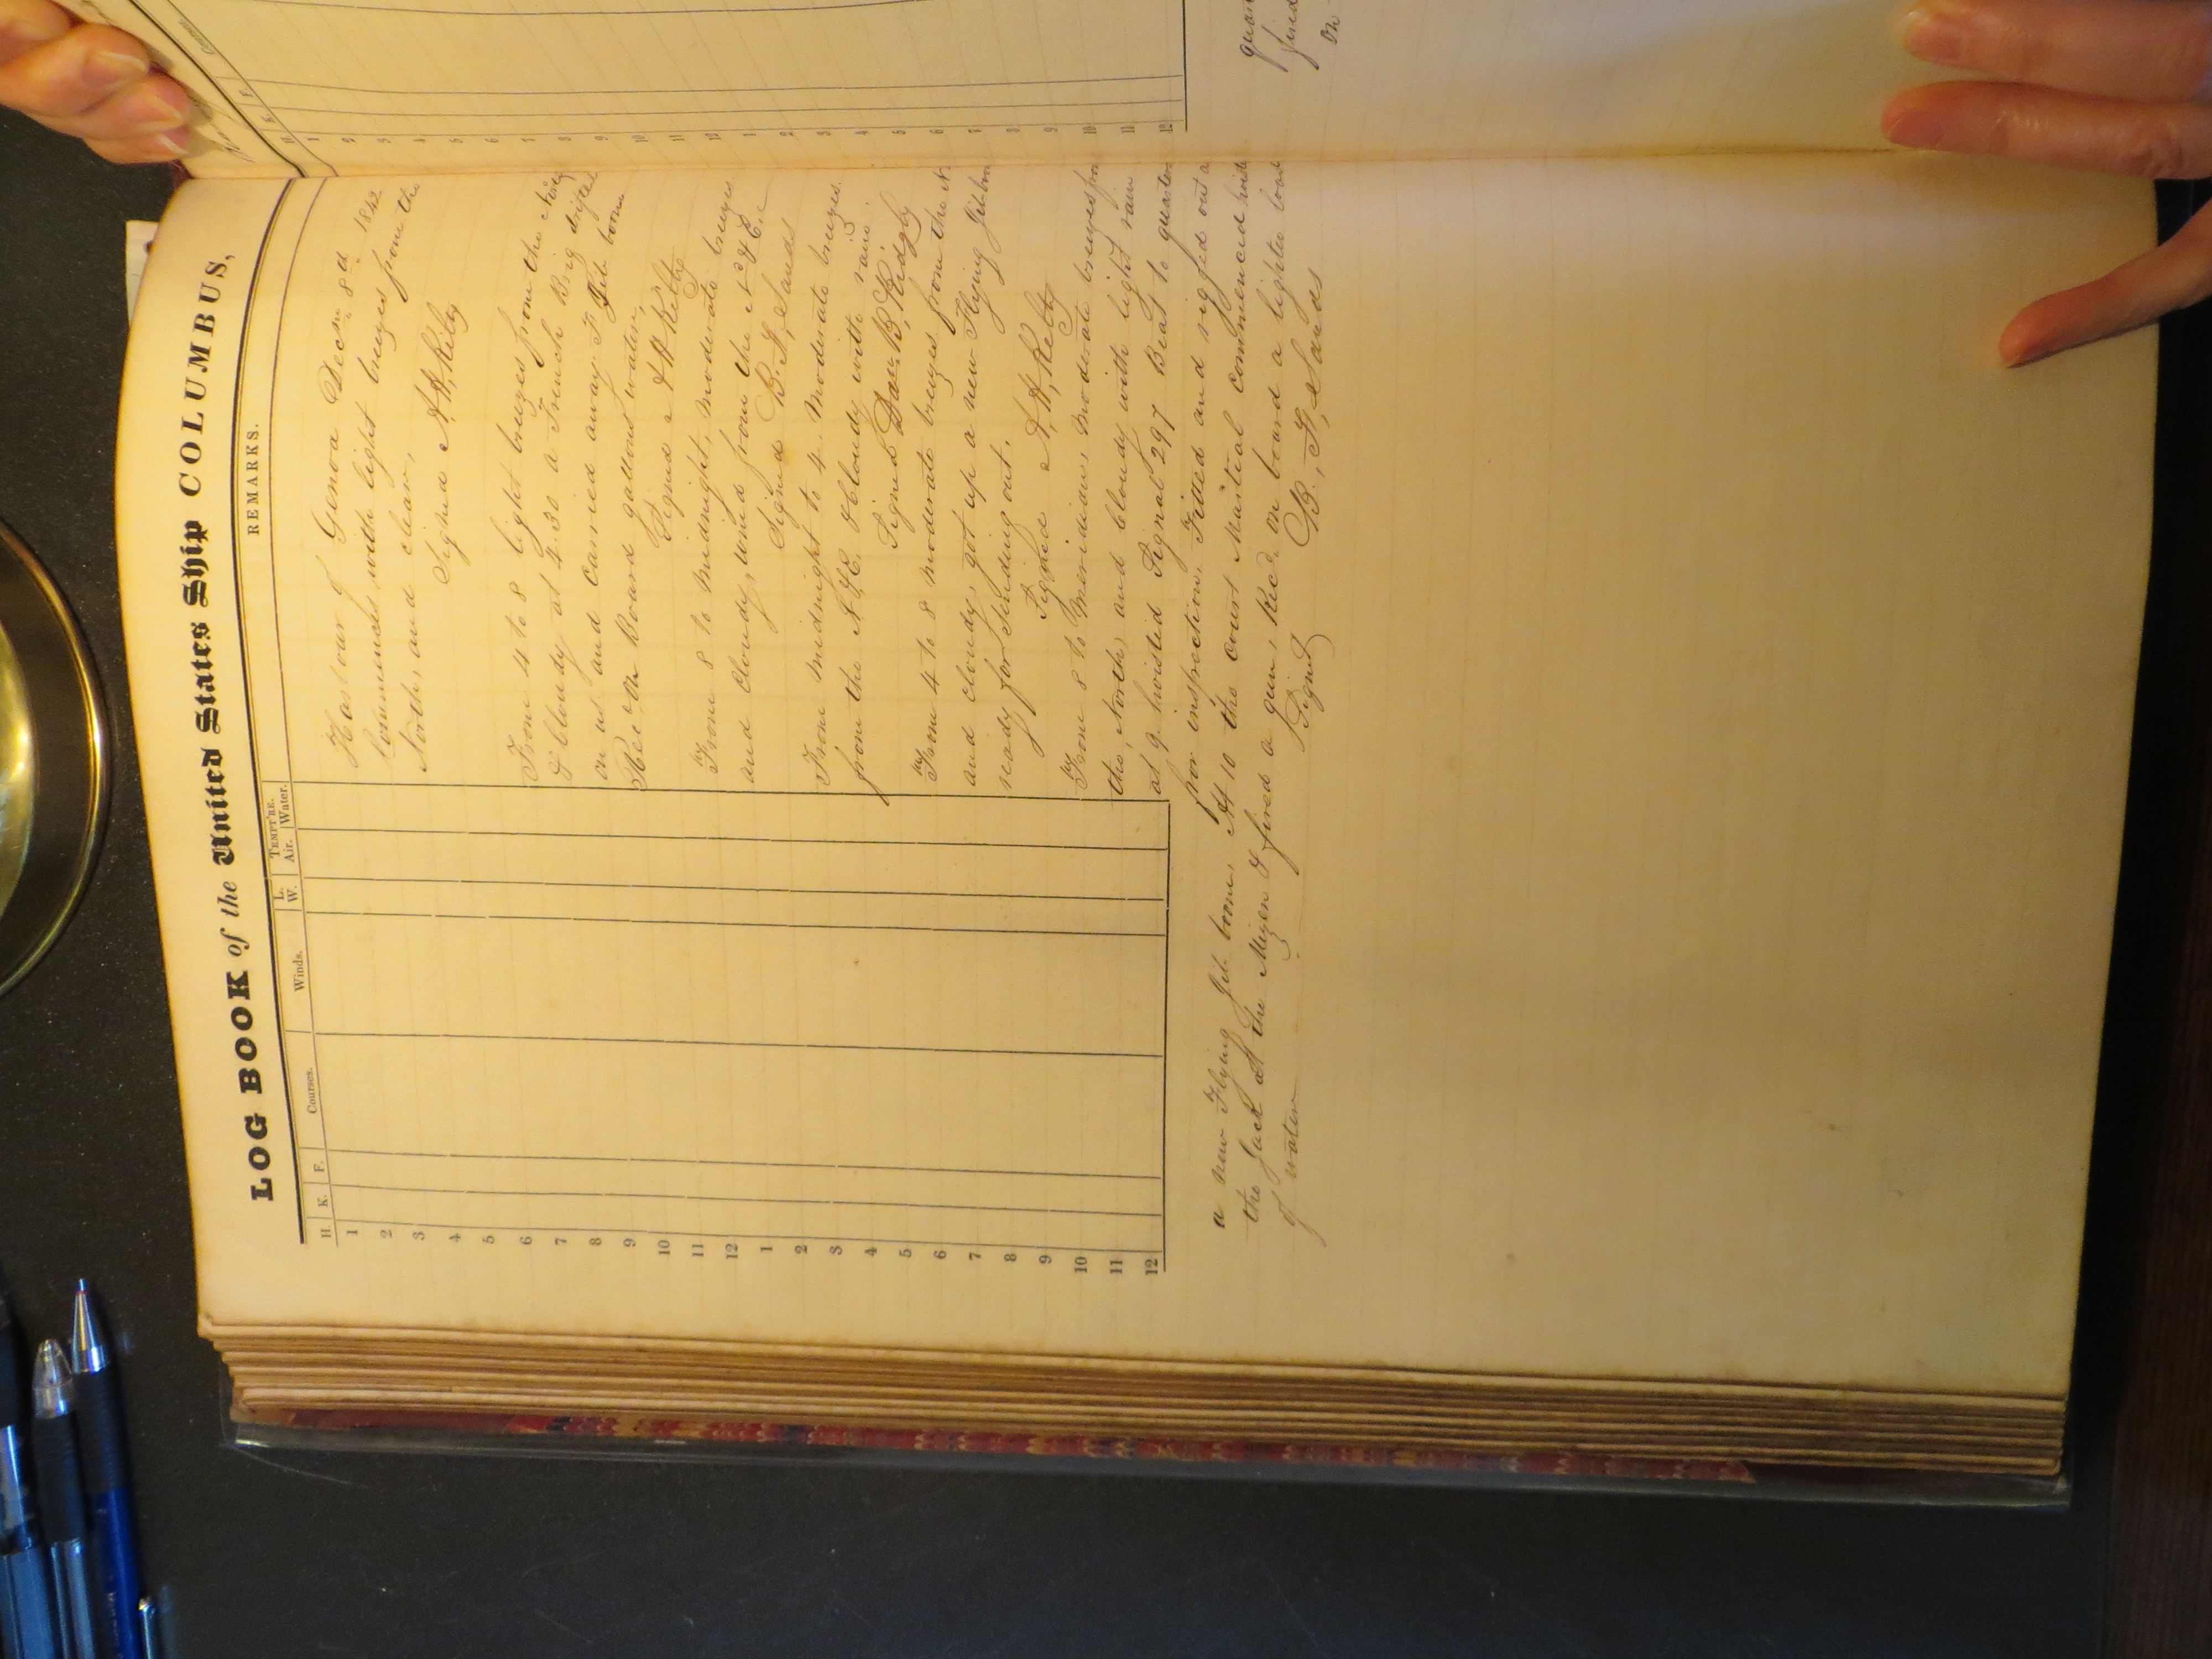 LOG BOOK of the United States Ship COLUMBUS,
H. K. F. Courses. Winds. L. W. TEMPT'RE. Air. Water. REMARKS.
1
2
3
4
5
6
7
8
9
10
11
12
1
2
3
4
5
6
7
8
9
10
11
12
Harbour of Genoa Decem 8th 1842
Commences with light breezes from the
North, and clear,
Signed A. H. Kilty
From 4 to 8 light breezes from the
& cloudy at 4.30 a French Brig drifted
on us and carried away F. Jib boom
Recd on Board gallons water,
Signed A H Kilty
From 8 to Midnight, moderate breezes
and cloudy, wind from the N & E.
Signed B. F. Sands
From midnight to 4. Moderate breezes
from the N & E. & Cloudy with rain.
Signed Danl B. Ridgely
From 4 to 8 moderate breezes from the N
and cloudy, got up a new Flying Jib boom
ready for sending out.
Signed A. H. Kilty
From 8 to Meridian, Moderate breezes from
the North, and Cloudy with light rain
at 9 hoisted Signal 297 Beat to quarters
for inspection. Fitted and rigged out a
a new Flying Jib boom, At 10 the Court Martial commenced
the Jack at the Mizen & fired a gun, Recd on board a lighter load
of water
Signed B. F. Sands
H. K. F. Courses
1
2
3
4
5
6
7
8
9
10
11
12
1
2
3
4
5
6
7
8
9
10
11
12